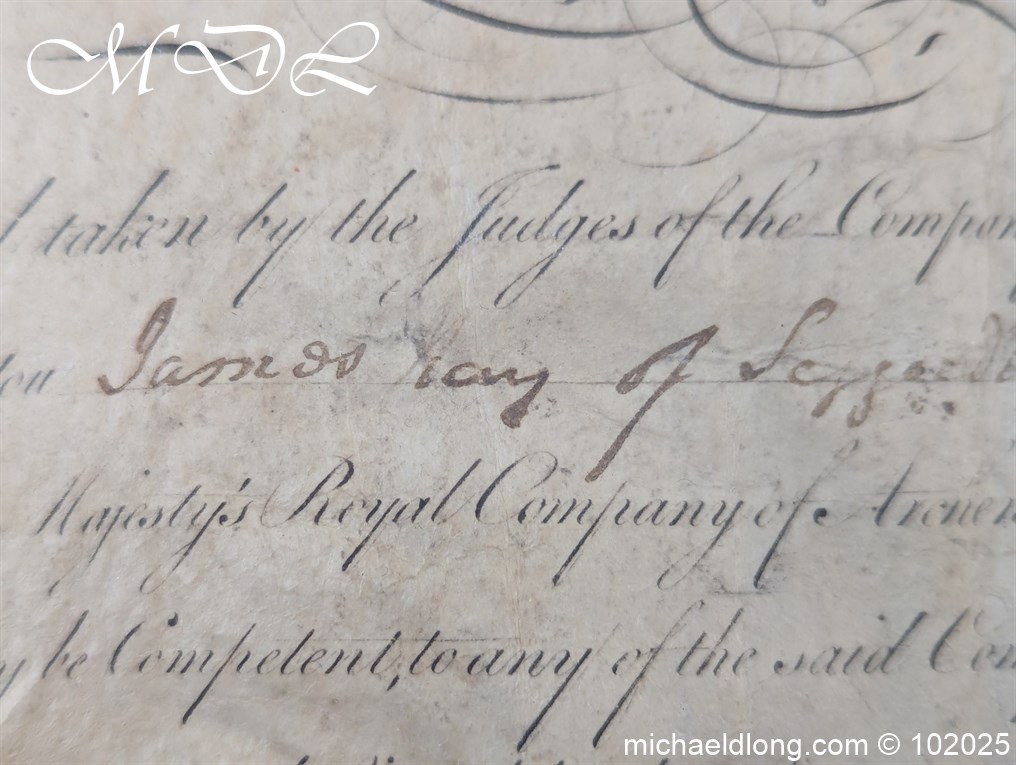 MDL
taken by the Judges of the Compan
James Hay of Seggied
Majesty's Royal Company of Archer
y be Competent, to any of the said Com
michaeldlong.com © 102025